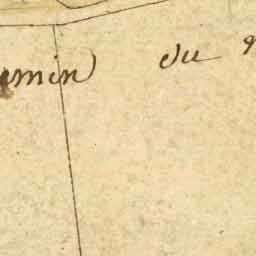 emin du